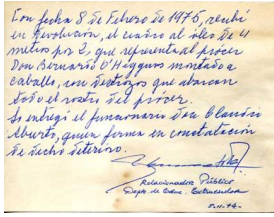 Con fecha 8 de Febrero de 1975, recibí
en devolución, el cuadro al óleo de 4
metros por 2, que representa al prócer
Don Bernardo O'Higgins montado a
caballo, con destrozos que abarcan
todo el rostro del prócer.
Se entregó el funcionario don Claudio
Aburto, quien firma en constatación
de dicho deterioro.
Relacionador Público
Depto. de Educ. Extraescolar